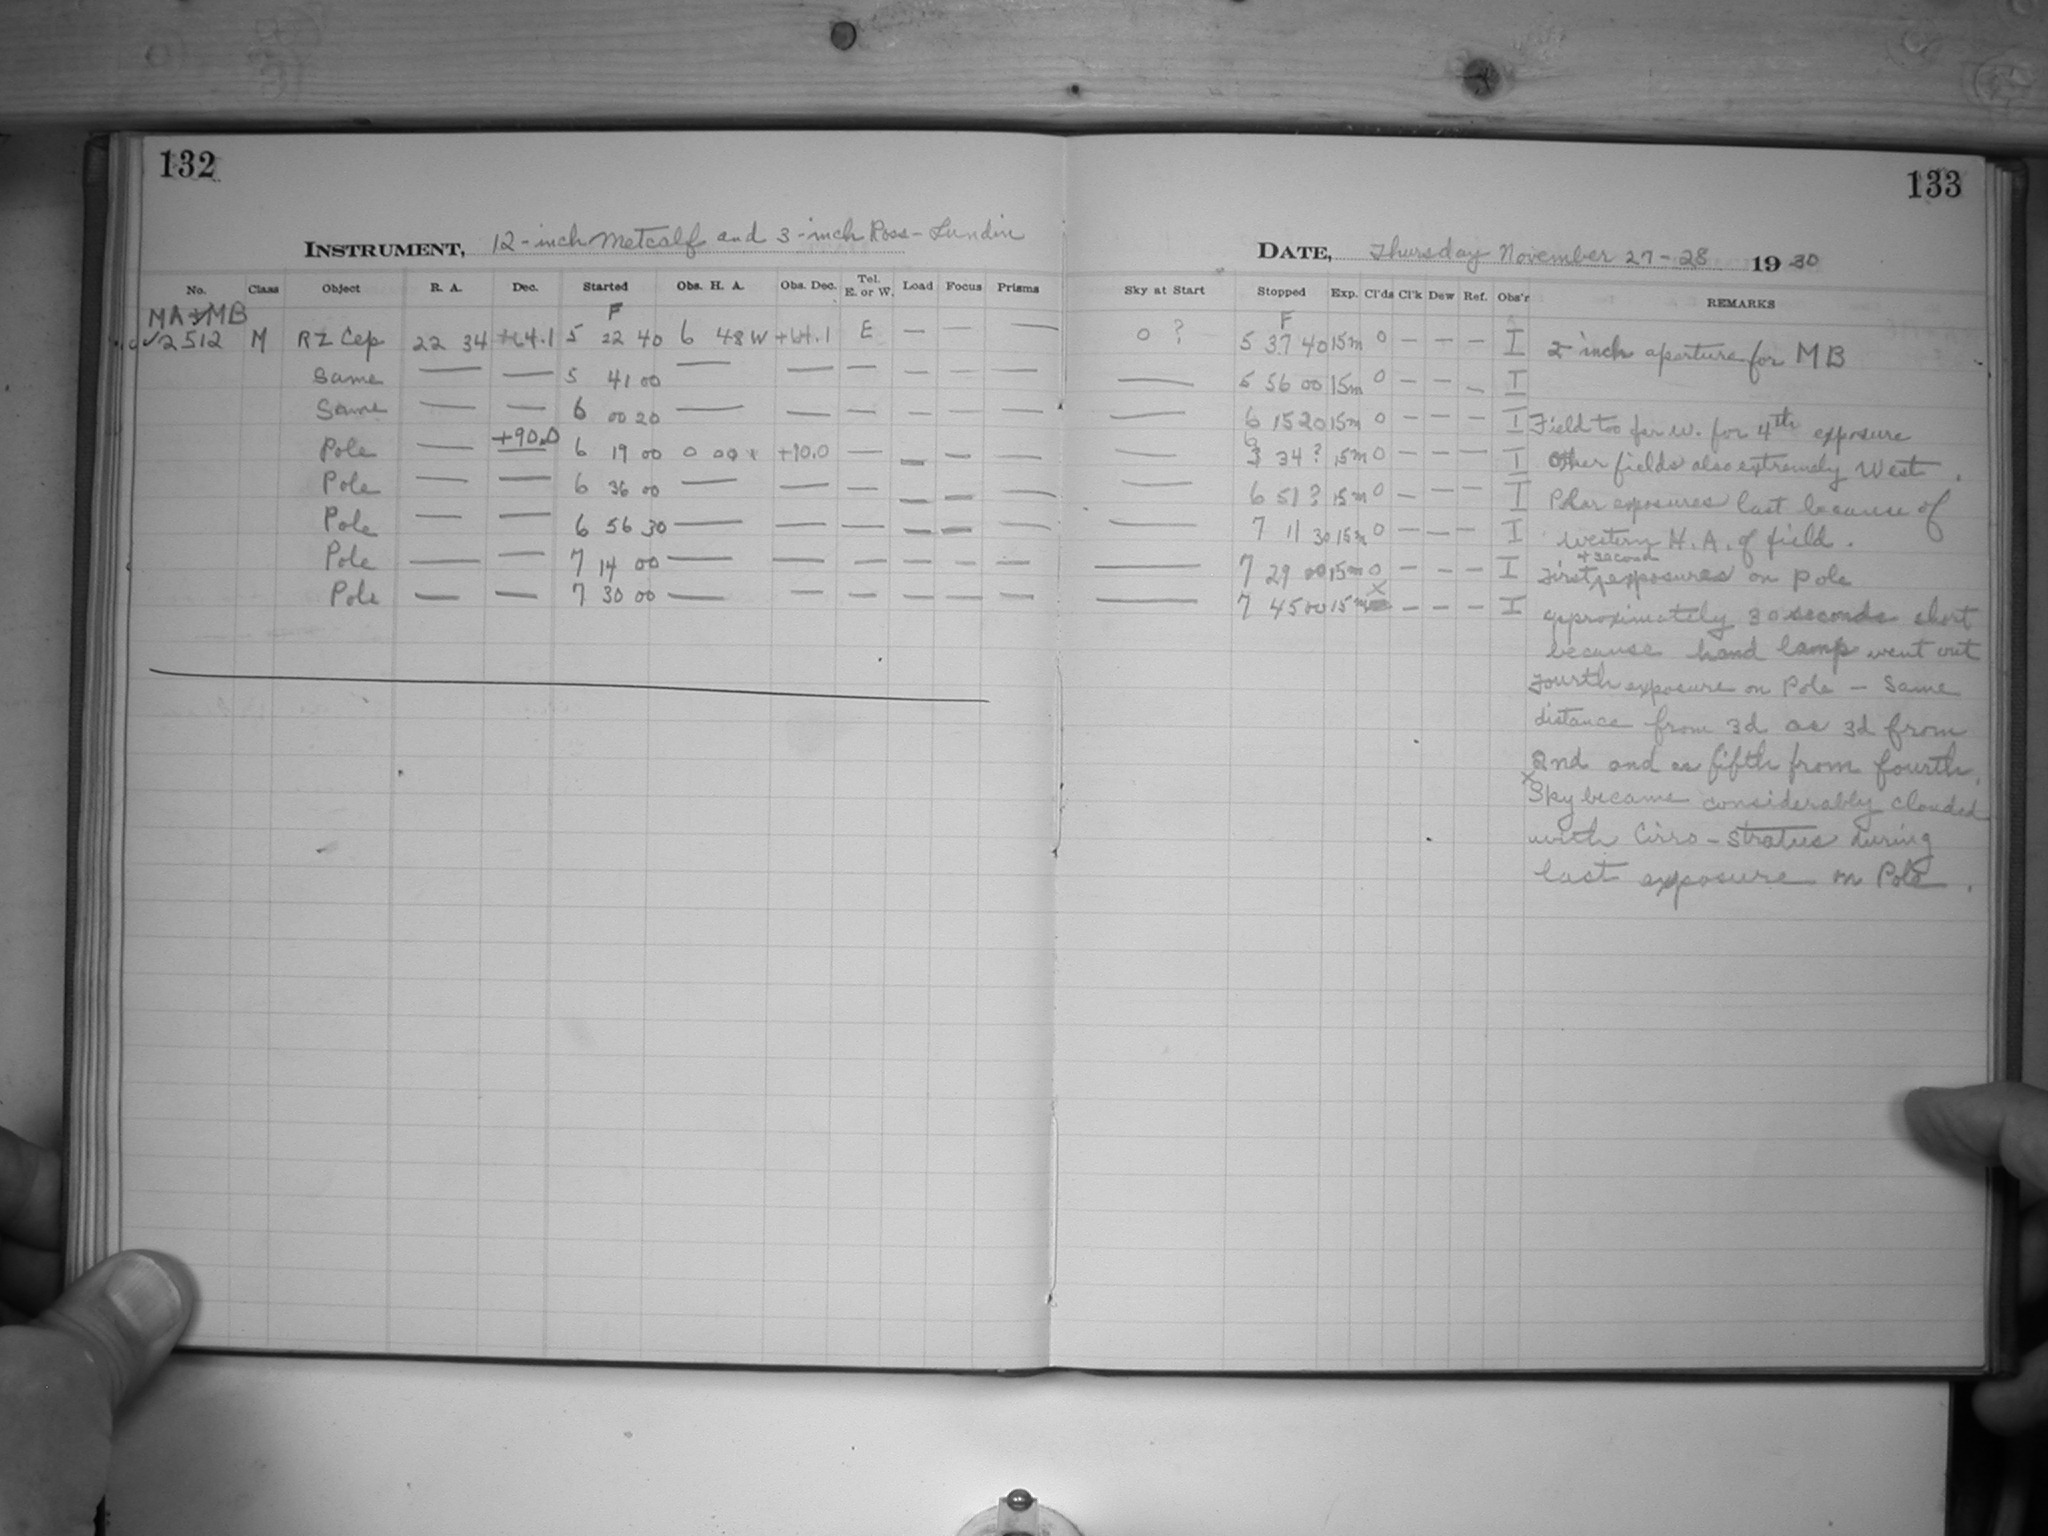 132
133
INSTRUMENT, 12-inch Metcalf and 3-inch Ross-Lundin
DATE, Thursday November 27-28 1930
No. Class Object R. A. Dec. Started Obs. H. A. Obs. Dec. Tel. E. or W. Load Focus Prisms Sky at Start Stopped Exp. Cl'ds Cl'k Dew Ref. Obs'r REMARKS
MA+MB F F
√2512 M RZ Cep 22 34 +64.1 5 22 40 6 48 W +64.1 E — — — 0 ? 5 37 40 15m 0 — — — I 2-inch aperture for MB
Same — — 5 41 00 — — — — — — — 5 56 00 15m 0 — — — I
Same — — 6 00 20 — — — — — — — 6 15 20 15m 0 — — — I Field too far W. for 4th exposure
Pole — +90.0 6 19 00 0 00 +90.0 — — — — — 6 34 ? 15m 0 — — — I Other fields also extremely West.
Pole — — 6 36 00 — — — — — — 6 51 ? 15m 0 — — — I Polar exposures last because of
Pole — — 6 56 30 — — — — — — — 7 11 30 15m 0 — — — I western H.A. of field.
Pole — — 7 14 00 — — — — — — — 7 29 00 15m 0 — — — I First + second exposures on pole
Pole — — 7 30 00 — — — — — — — 7 45 00 15m x — — — I approximately 30 seconds short
because hand lamp went out
Fourth exposure on Pole — Same
distance from 3d as 3d from
2nd and as fifth from fourth.
x Sky became considerably clouded
with Cirro-Stratus during
last exposure on Pole.